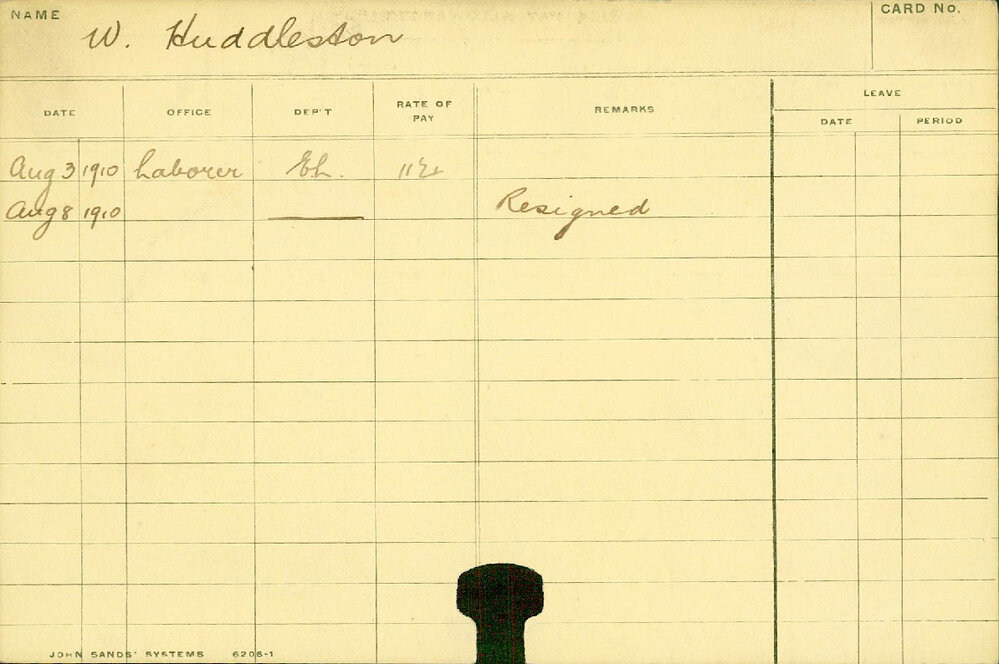 NAME W. Huddleston CARD No.
DATE OFFICE DEP'T RATE OF PAY REMARKS LEAVE
DATE PERIOD
Aug 3 1910 Laborer Eh.
Aug 8 1910 Resigned
JOHN SANDS' SYSTEMS 6206-1